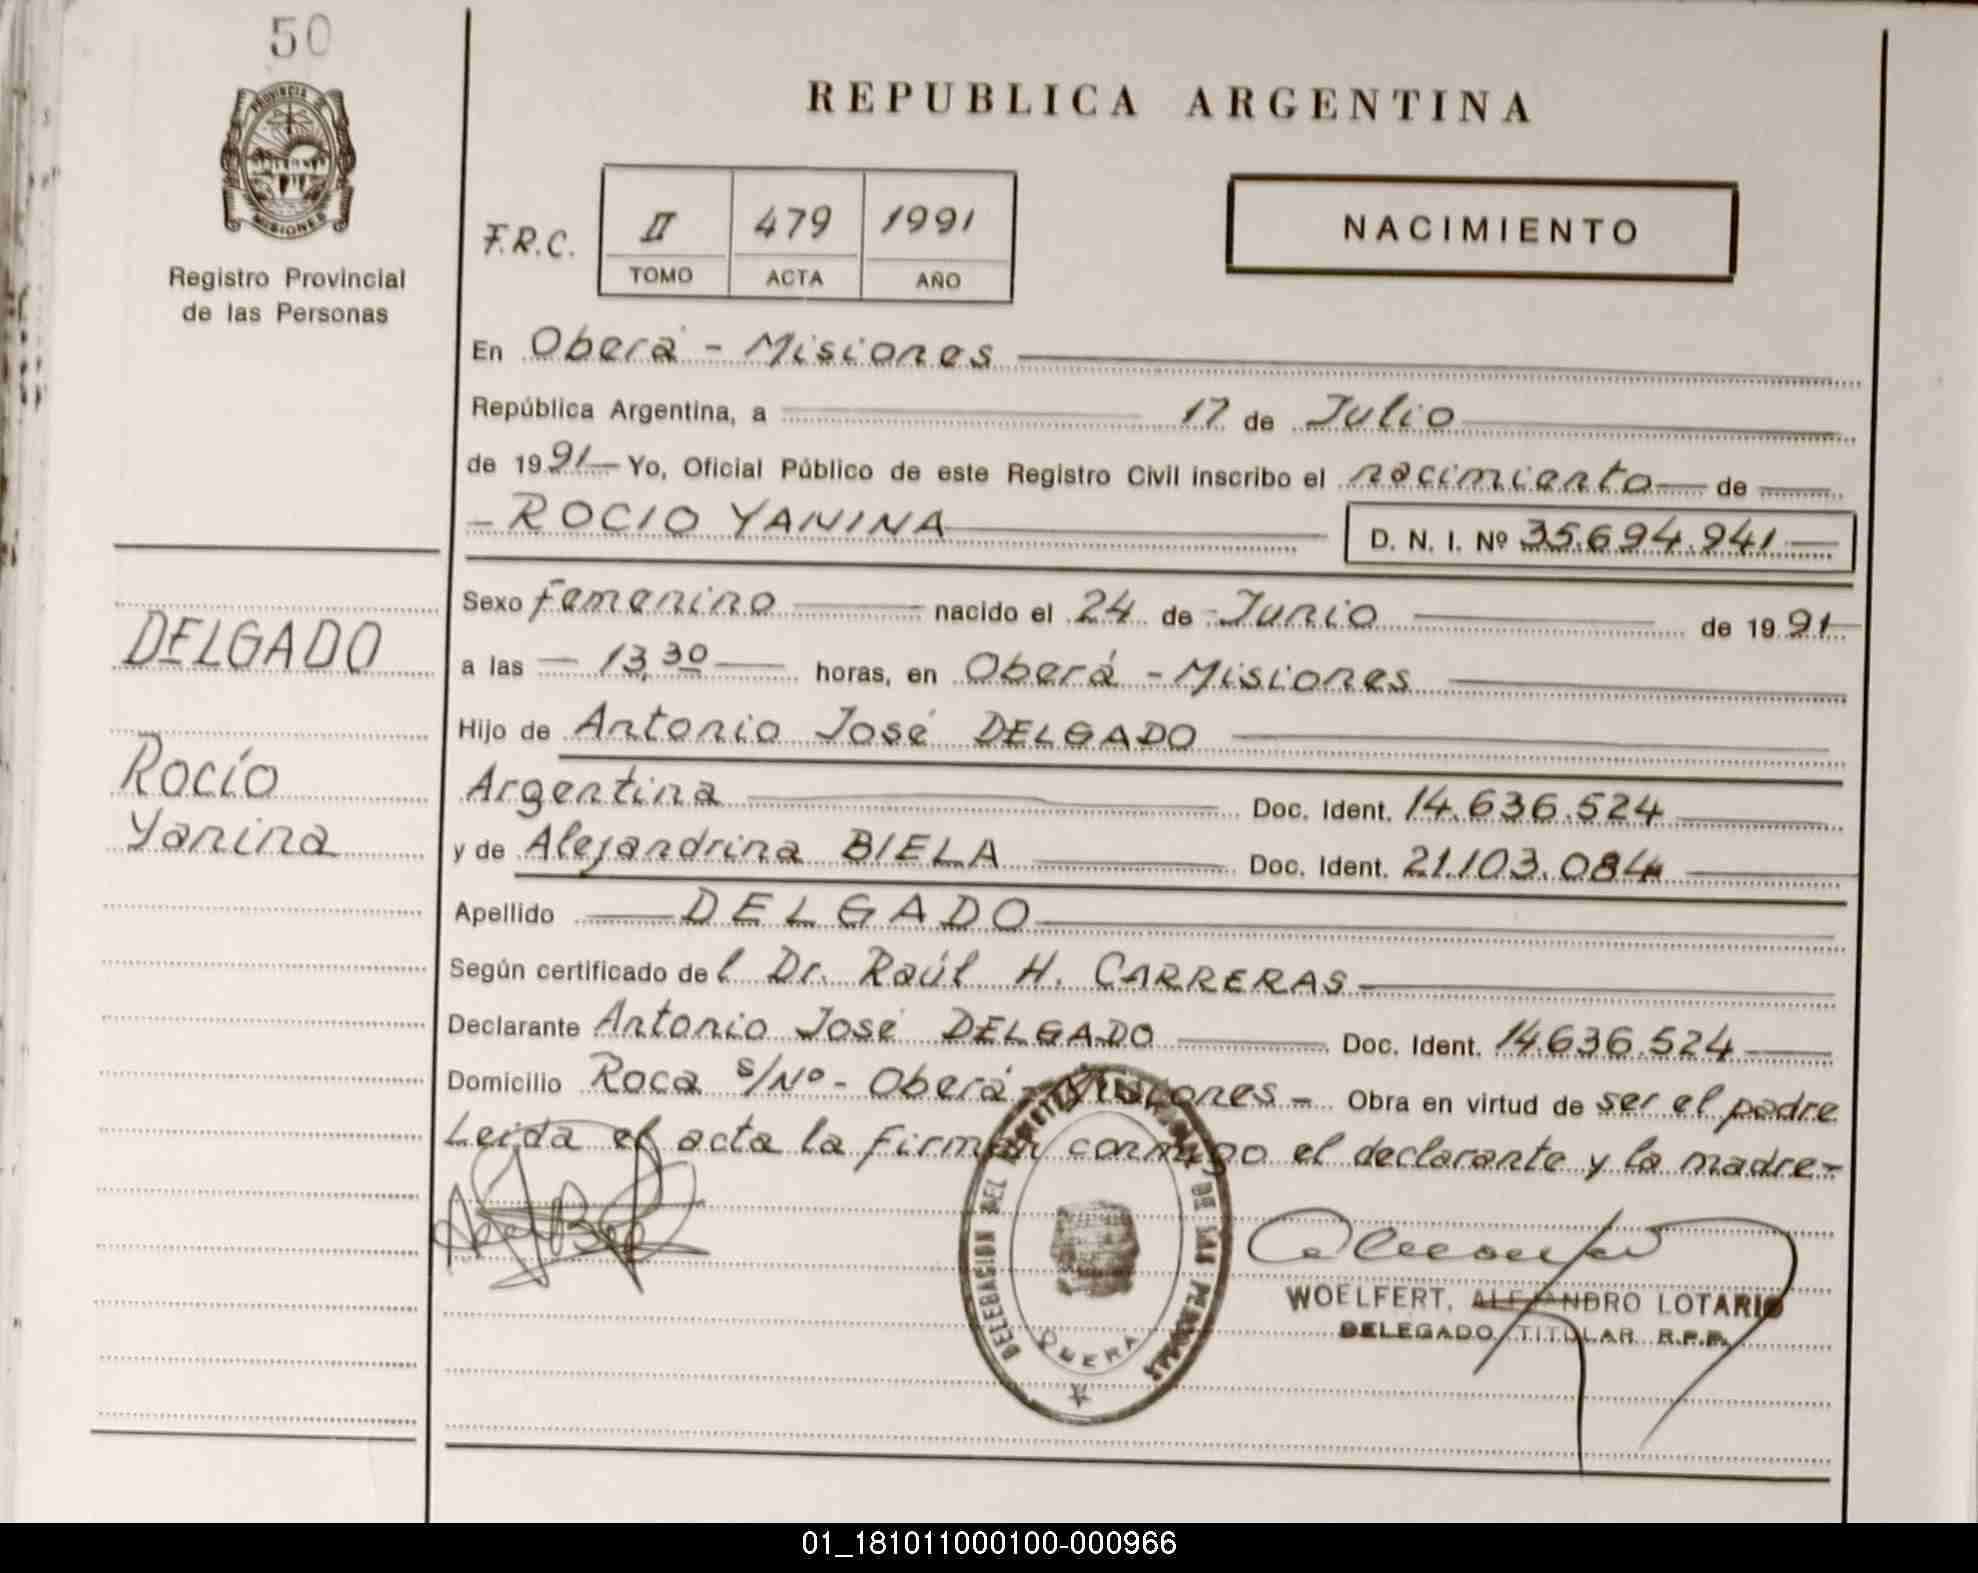 50
PROVINCIA D
MISIONES
Registro Provincial
de las Personas
REPUBLICA ARGENTINA
F.R.C.
II 479 1991
TOMO ACTA AÑO
NACIMIENTO
En Oberá - Misiones
República Argentina, a 17 de Julio
de 1991 Yo, Oficial Público de este Registro Civil inscribo el nacimiento de
- ROCIO YANINA D. N. I. Nº 35.694.941
DELGADO
Rocío
Yanina
Sexo Femenino nacido el 24 de Junio de 1991
a las 13,30 horas, en Oberá - Misiones
Hijo de Antonio José DELGADO
Argentina Doc. Ident. 14.636.524
y de Alejandrina BIELA Doc. Ident. 21.103.084
Apellido DELGADO
Según certificado del Dr. Raúl H. CARRERAS
Declarante Antonio José DELGADO Doc. Ident. 14.636.524
Domicilio Roca s/Nº - Oberá - Misiones - Obra en virtud de ser el padre
Leida el acta la firman conmigo el declarante y la madre-
DELEGACION DEL DE LAS PERSONAS
OBERA
WOELFERT, ALEJANDRO LOTARIO
DELEGADO TITULAR R.P.P.
01_181011000100-000966